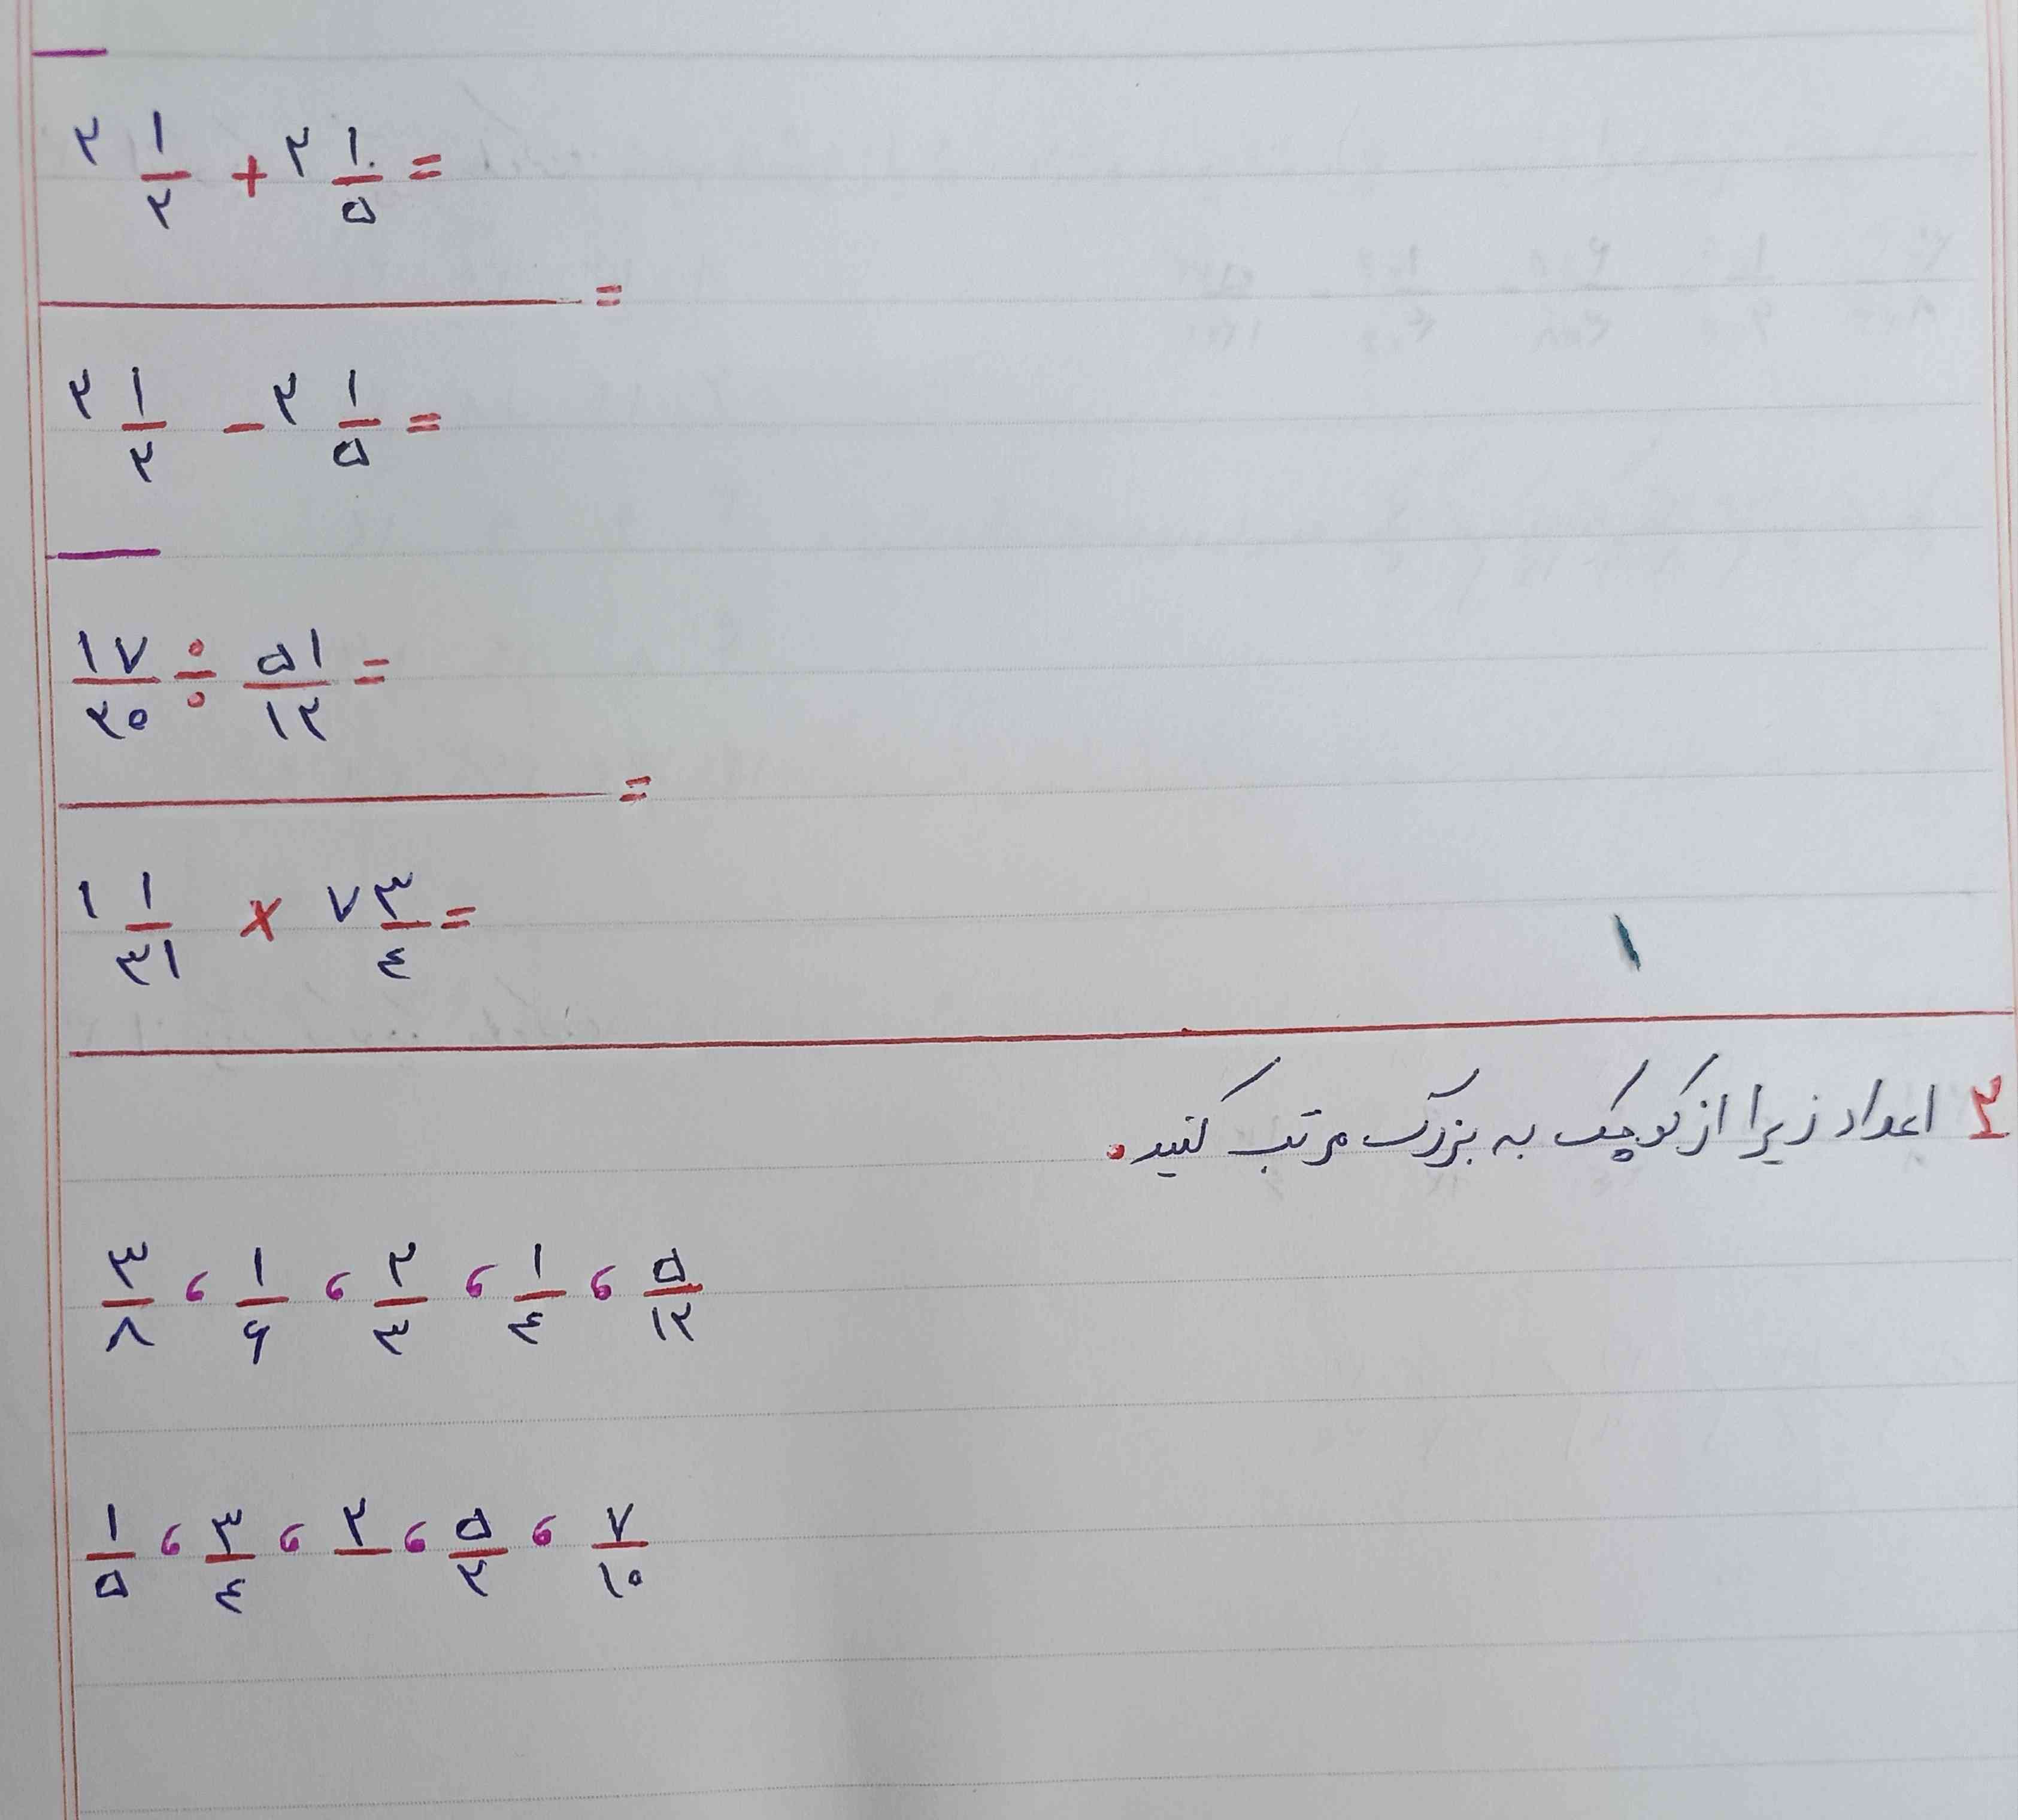 ۲ ۱/۲ + ۲ ۱/۵ =
=
۲ ۱/۲ - ۲ ۱/۵ =
۱۷/۲۰ ÷ ۵۱/۱۲ =
=
۱ ۱/۳۱ × ۷ ۳/٤ =
۲ اعداد زیر را از کوچک به بزرگ مرتب کنید.
۳/۸ ، ۱/۶ ، ۲/۳ ، ۱/٤ ، ۵/۱۲
۱/۵ ، ۳/٤ ، ۲/ ، ۵/۲ ، ۷/۱۰